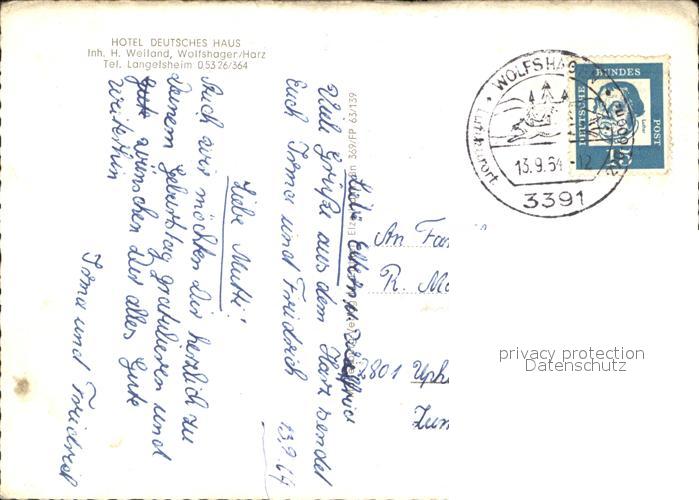 HOTEL DEUTSCHES HAUS
Inh. H. Weiland, Wolfshagen/Harz
Tel. Langelsheim 05326/364
Liebe Eltern u.
Viele Grüße aus dem Harz sendet
Euch Irma und Friedrich
13.9.64
Liebe Mutti!
Auch wir möchten Dir herzlich zu
Deinem Geburtstag gratulieren und
wünschen Dir alles Gute
weiterhin
Irma und Friedrich
369/FP 63/139
WOLFSHAG
Luftkurort
13.9.64-12
3391
DEUTSCHE
BUNDES
POST
An Fam
R. M
2801 Uph
privacy protection
Datenschutz